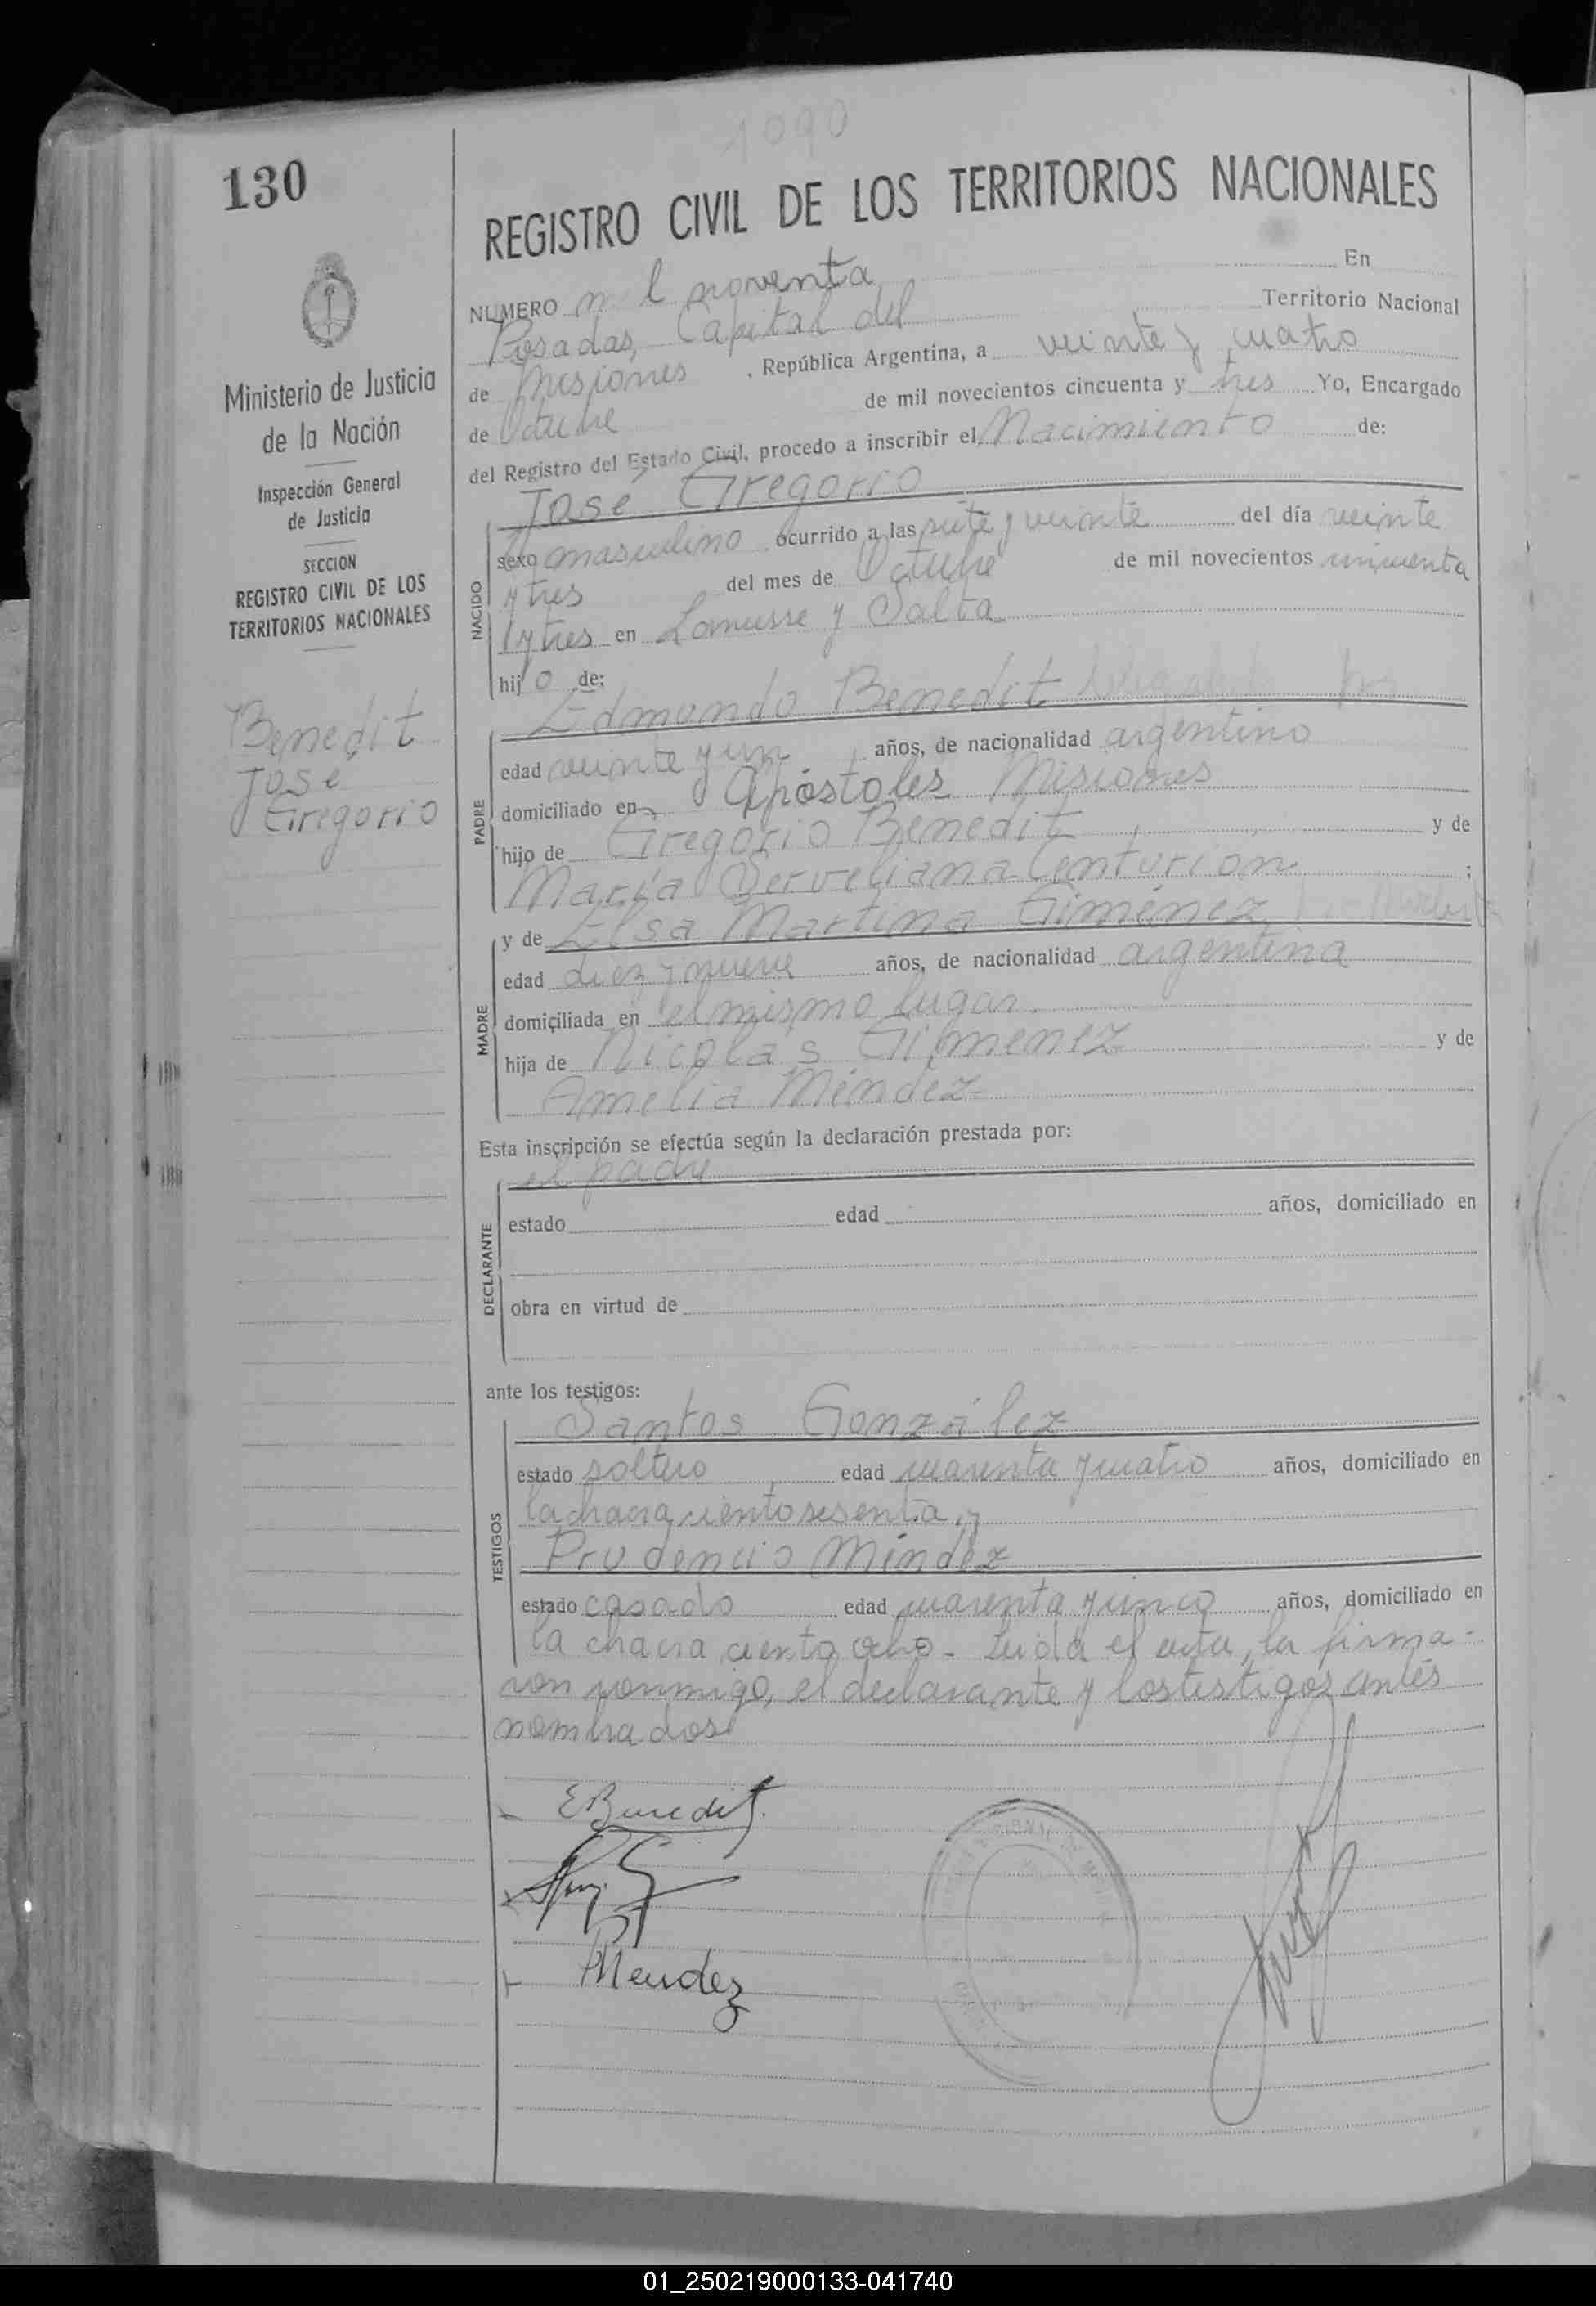 1090
130
REGISTRO CIVIL DE LOS TERRITORIOS NACIONALES
NUMERO mil noventa En
Posadas, Capital del Territorio Nacional
de Misiones , República Argentina, a veinte y cuatro
de Octubre de mil novecientos cincuenta y tres Yo, Encargado
del Registro del Estado Civil, procedo a inscribir el Nacimiento de:
José Gregorio
NACIDO
sexo masculino ocurrido a las siete y veinte del día veinte
y tres del mes de Octubre de mil novecientos cincuenta
y tres en Lanusse y Salta
hijo de:
Edmundo Benedit
PADRE
edad veinte y un años, de nacionalidad argentino
domiciliado en Apóstoles Misiones
hijo de Gregorio Benedit y de
María Serveliana Centurion ;
y de Elsa Martina Giménez
MADRE
edad diez y nueve años, de nacionalidad argentina
domiciliada en el mismo lugar.
hija de Nicolás Gimenez y de
Amelia Méndez
Esta inscripción se efectúa según la declaración prestada por:
el padre
DECLARANTE
estado edad años, domiciliado en
obra en virtud de
ante los testigos:
Santos González
TESTIGOS
estado soltero edad cuarenta y cuatro años, domiciliado en
la chacra ciento sesenta, y
Prudencio Méndez
estado casado edad cuarenta y cinco años, domiciliado en
la chacra ciento ocho - Leida el acta, la firma-
ron conmigo, el declarante y los testigos antes
nombrados
E Benedit.
PMendez
Ministerio de Justicia
de la Nación
Inspección General
de Justicia
SECCION
REGISTRO CIVIL DE LOS
TERRITORIOS NACIONALES
Benedit
José
Gregorio
01_250219000133-041740